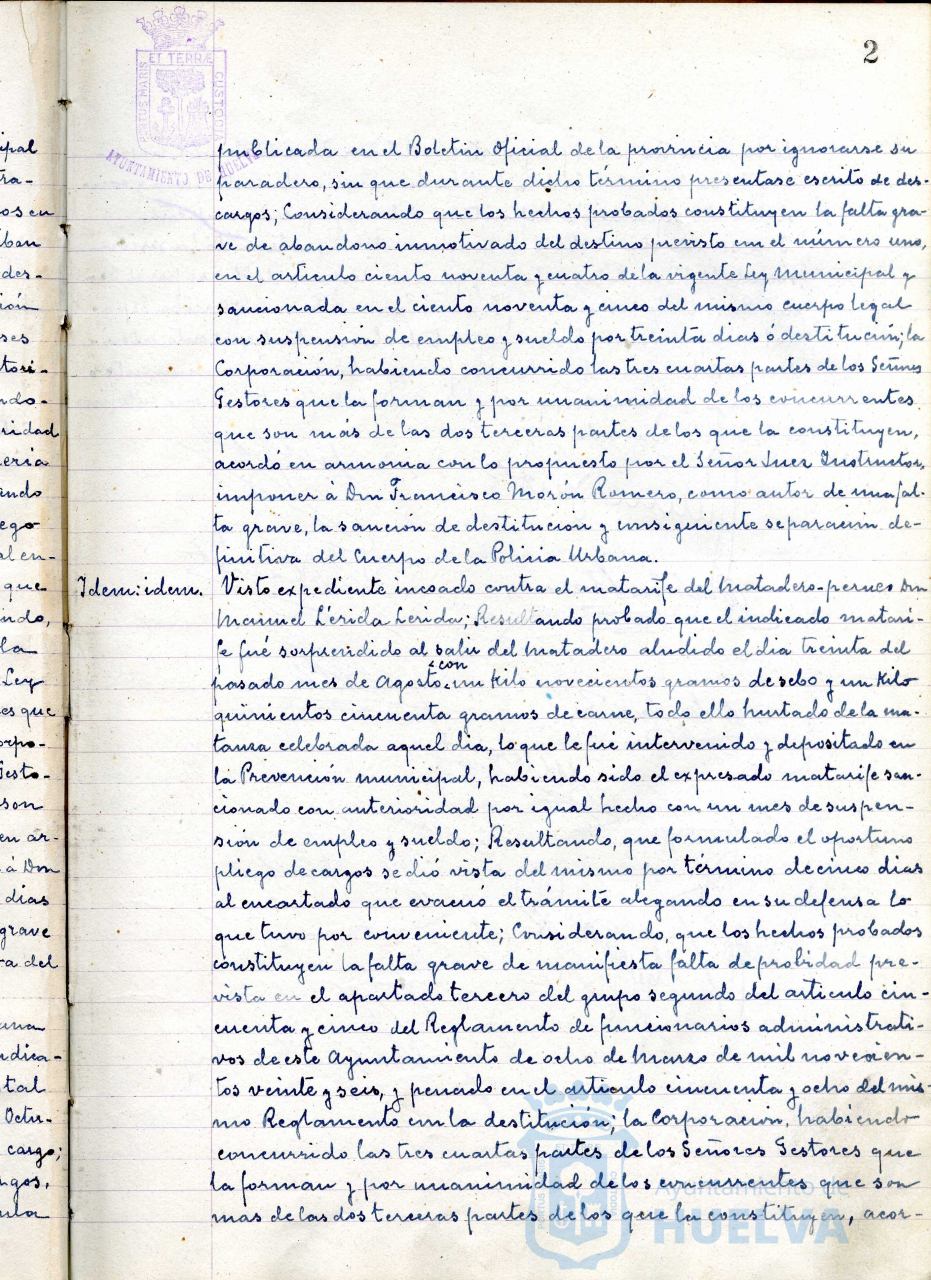 2
PORTUS MARIS
ET TERRÆ
CUSTODIA
AYUNTAMIENTO DE HUELVA
publicada en el Boletin Oficial de la provincia por ignorarse su
paradero, sin que durante dicho término presentase escrito de des-
cargos; Considerando que los hechos probados constituyen la falta gra-
ve de abandono inmotivado del destino previsto em el número uno,
en el articulo ciento noventa y cuatro de la vigente Ley Municipal y
sancionada en el ciento noventa y cinco del mismo cuerpo legal
con suspensión de empleo y sueldo por treinta dias ó destitución; la
Corporación, habiendo concurrido las tres cuartas partes de los Señores
Gestores que la forman y por unanimidad de los concurrentes
que son más de las dos terceras partes de los que la constituyen,
acordó en armonia con lo propuesto por el Señor Juez Instructor,
imponer à Don Francisco Morón Romero, como autor de una fal-
ta grave, la sanción de destitución y consiguiente separación de-
finitiva del Cuerpo de la Policia Urbana.
Idem: idem. Visto expediente incoado contra el matarife del Matadero Don
Manuel Lérida Lerida; Resultando probado que el indicado matari-
fe fué sorprendido al salir del matadero aludido el dia treinta del
pasado mes de Agosto con un Kilo novecientos gramos de sebo y un Kilo
quinientos cincuenta gramos de carne, todo ello hurtado de la ma-
tanza celebrada aquel dia, lo que le fué intervenido y depositado en
la Prevención municipal, habiendo sido el expresado matarife san-
cionado con anterioridad por igual hecho con un mes de suspen-
sión de empleo y sueldo; Resultando, que formulado el oportuno
pliego de cargos se dió vista del mismo por término de cinco dias
al encartado que evacuó el trámite alegando en su defensa lo
que tuvo por conveniente; Considerando, que los hechos probados
constituyen la falta grave de manifiesta falta de probidad pre-
vista en el apartado tercero del grupo segundo del articulo cin-
cuenta y cinco del Reglamento de funcionarios administrati-
vos de este Ayuntamiento de ocho de Marzo de mil novecien-
tos veinte y seis, y penado en el articulo cincuenta y ocho del mis-
mo Reglamento con la destitución; la Corporación, habiendo
concurrido las tres cuartas partes de los Señores Gestores que
la forman y por unanimidad de los concurrentes que son
mas de las dos terceras partes de los que la constituyen, acor-
Ayuntamiento de
HUELVA